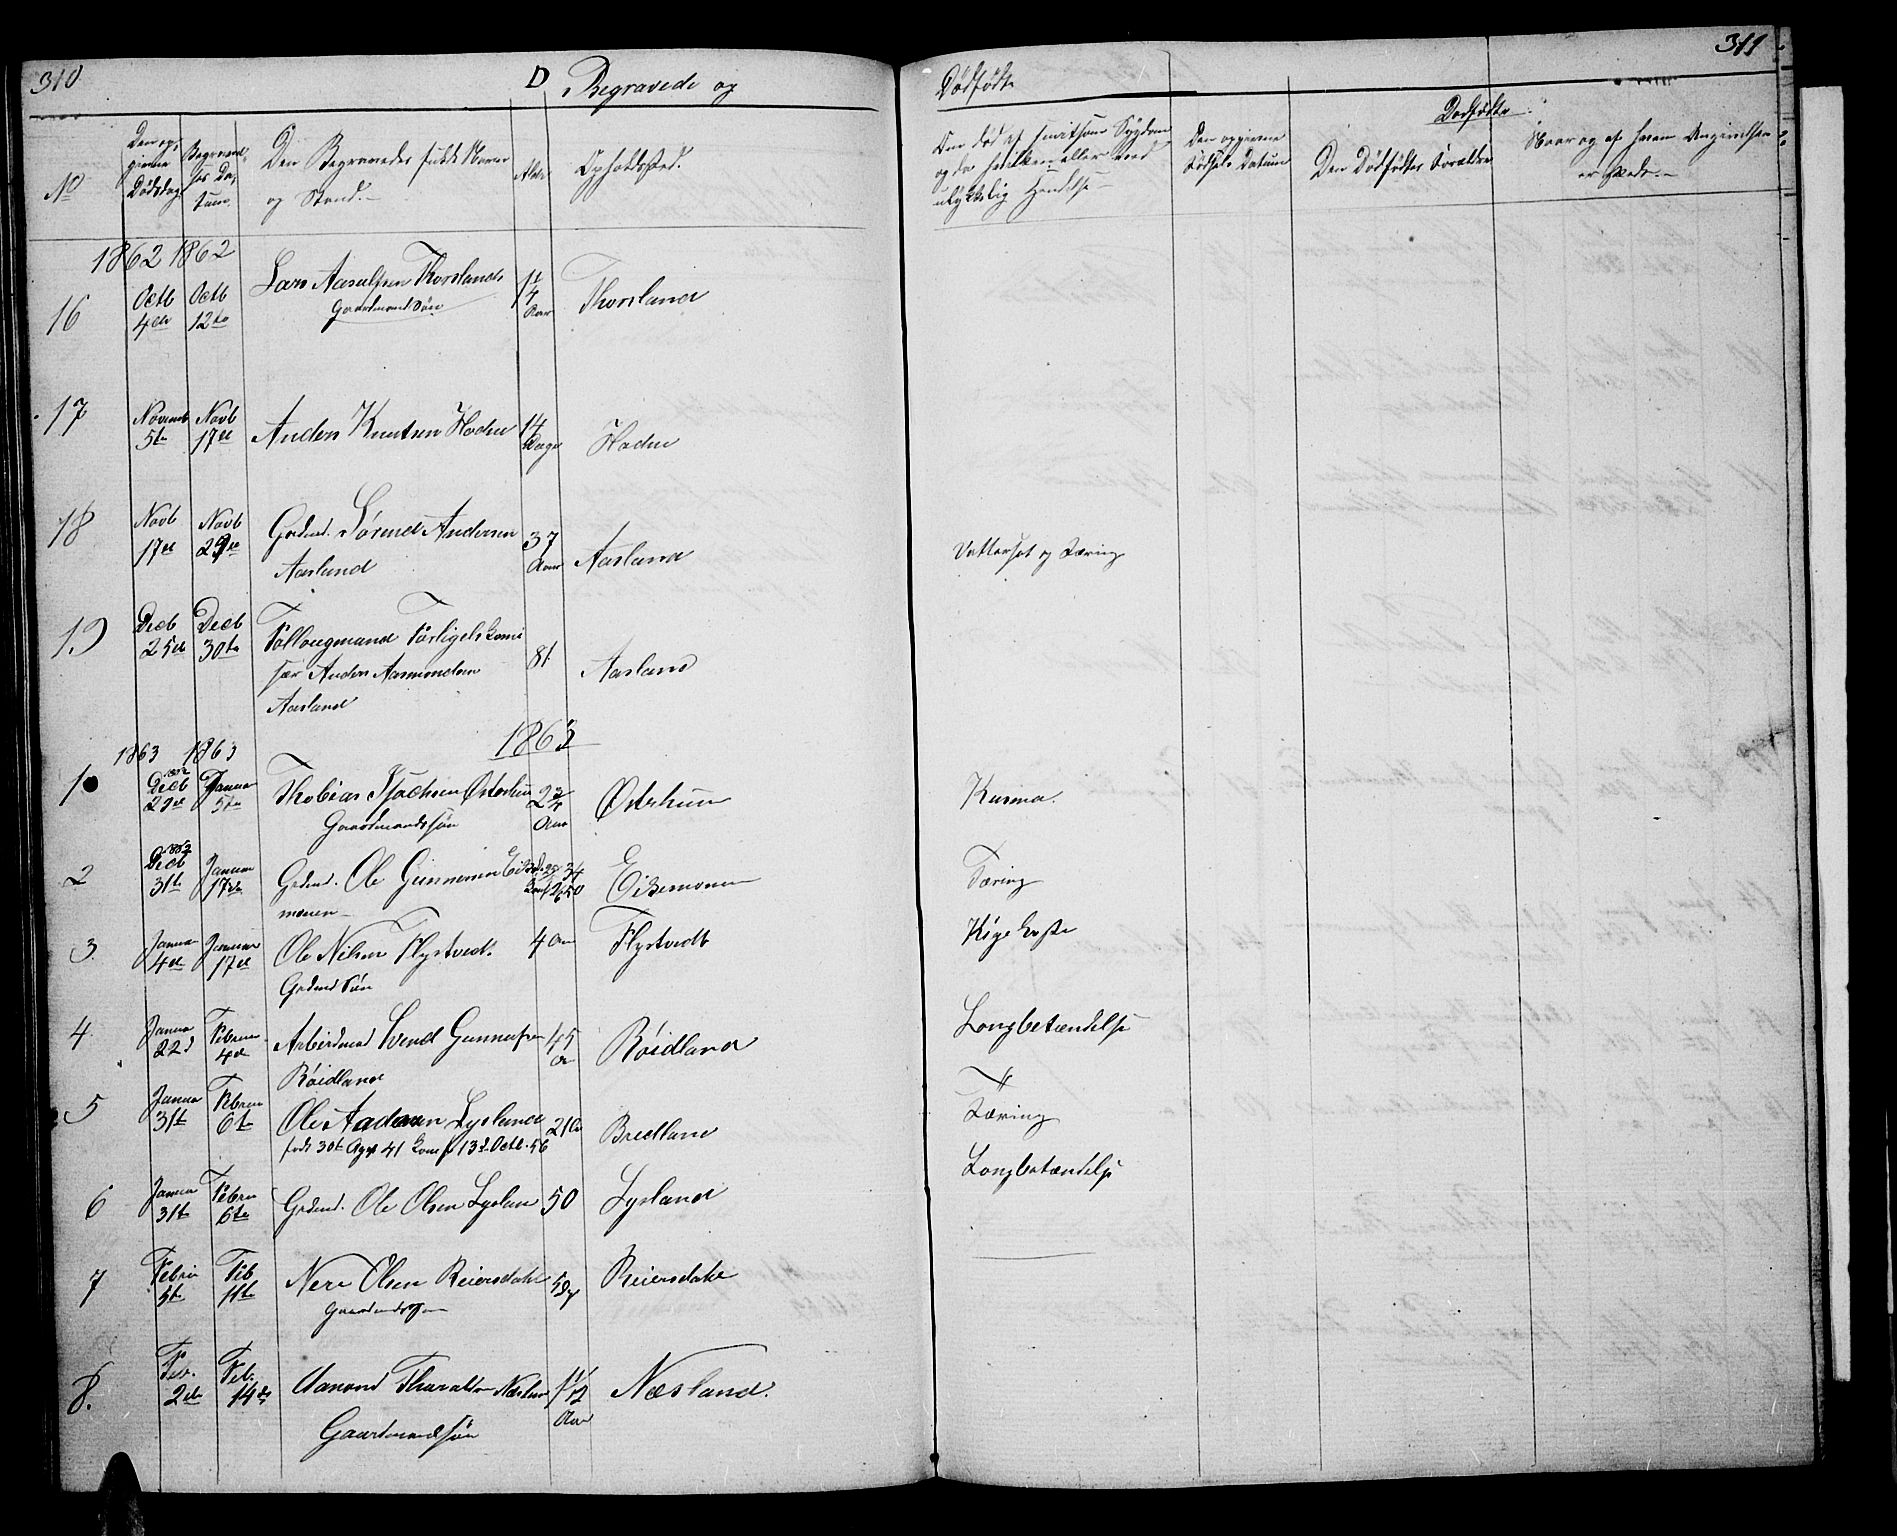 310
D Begravede og
No
Den op-
givne
Dødsdag
Begravel-
ses Da-
tum
Den Begravedes fulde Navn
og Stand.
Alder
Opholdssted.
1862 1862
16
Octb
4de
Octb
12te
Lars Aasulfsen Thorsland
Gaardmandssøn
1 1/4
Aar
Thorsland
17
Novemb
5te
Novb
17de
Anders Knutsen
14
Dage
18
Novb
17de
Novb
29de
Grdmd. Sørend Andersen
Aasland
37
Aar
Aasland
19
Decb
25de
Decb
30te
Föllougmand Forligelskomi
sær Anders Aasmundsen
Aasland
81
Aasland
1863 1863
1863
1
1862
Decb
29de
Januar
5te
Thobias Isachsen Østerhuus
Gaardmandssøn
2 3/4
Aar
Østerhuus
2
1862
Decb
31te
Januar
17de
Grdmd. Ole Gunnersen
moen
Eikemoen
3
Januar
4de
Januar
17de
Ole Nilsen Flystvedt
Grdmd Søn
4 Aar
Flystvedt
4
Januar
22d
Februar
4de
Arbeidsmd Svend Gunnufsen
Røidland
45
Aar
Røidland
5
Januar
31te
Februar
6te
Ole Andersen Lysland
født 30te Ags 41 Konf 13d Octb. 56
21 Aar
Bredland
6
Januar
31te
Februar
6te
Grdmd. Ole Olsen Lysland
50
Lysland
7
Februar
5te
Feb
11te
Neri Olsen Reiersdale
Gaardmandssøn
Reiersdale
8.
Feb.
2de
Feb.
14de
Aanond Tharaldsen Næsland
Gaardmandssøn
1 1/12
Aar
Næsland.
311
Dødfødte
Om død af smitsom Sygdom
og da hvilken eller ved
ulykkelig Hændelse
Den opgivne
Fødsels Datum
Dødfødte
Den Dødfødtes Forældre
Naar og af hvem Angivelsen
er skeet.
Vattersot og Tæring
Krusma.
Tæring
Kighoste
Longbetændelse
"
Tæring
Longbetændelse